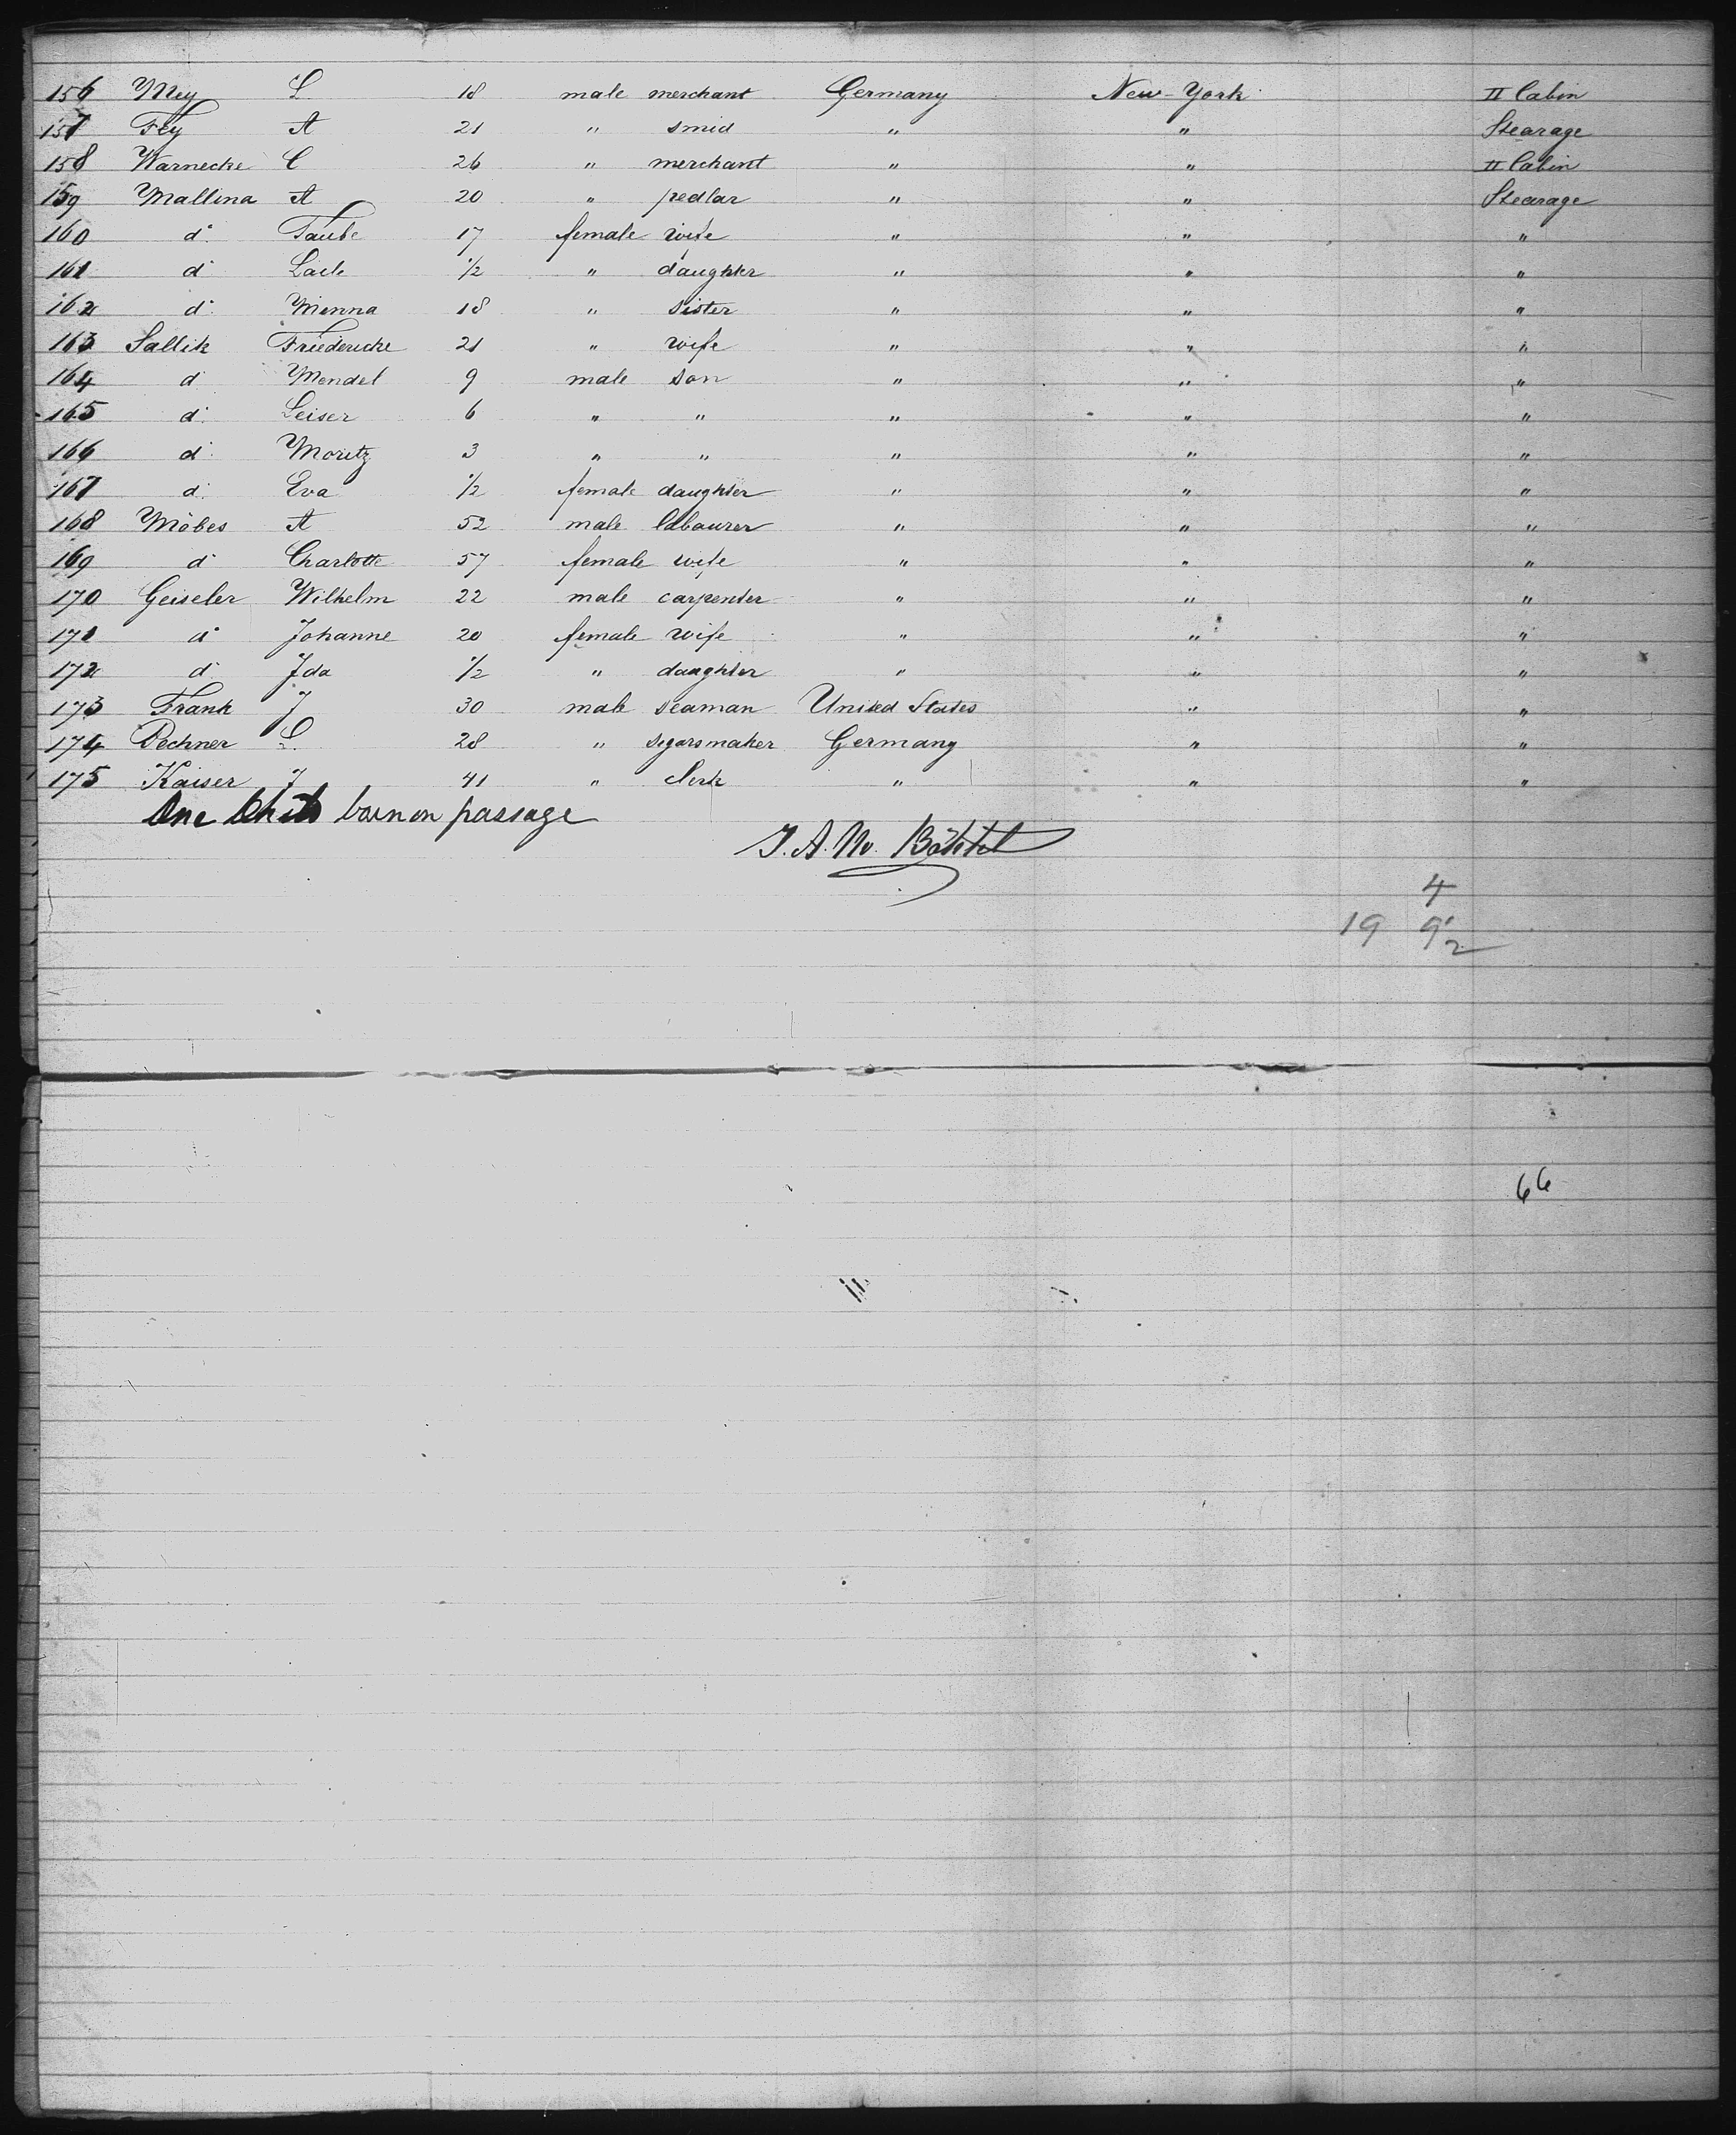 156 Mey L 18 male merchant Germany New-York II Cabin
157 Fey A 21 " smid " " Stearage
158 Warnecke C 26 " merchant " " II Cabin
159 Mallina A 20 " pedlar " " Stearage
160 do Taube 17 female wife " " "
161 do 1/2 " daughter " " "
162 do Minna 18 " sister " " "
163 Sallik Friedericke 21 " wife " " "
164 do Mendel 9 male son " " "
165 do Leiser 6 " " " " "
166 do Moritz 3 " " " " "
167 do Eva 1/2 female daughter " " "
168 Möbes A 52 male labourer " " "
169 do Charlotte 57 female wife " " "
170 Geiseler Wilhelm 22 male carpenter " " "
171 do Johanne 20 female wife " " "
172 do Ida 1/2 " daughter " " "
173 Frank J 30 male seaman United States " "
174 Pechner L. 28 " segarsmaker Germany " "
175 Kaiser J 41 " clerk " " "
One Child born on passage
J. A. W.
4
19 9
2
66